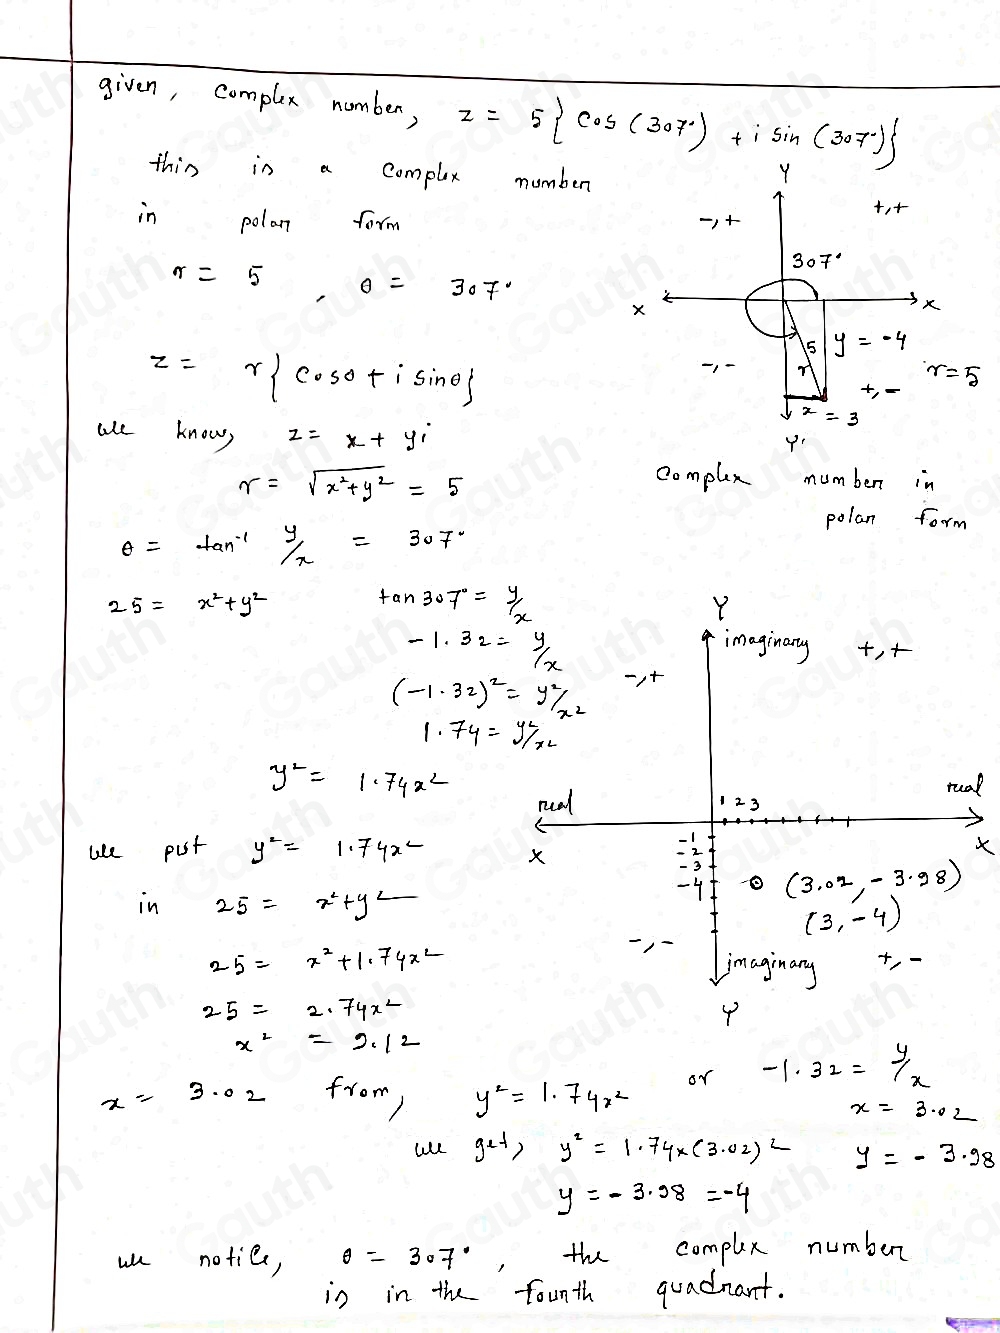 given, complex number, z = 5{cos(307°) + i sin(307°)}
this is a complex number
in polar form
r = 5, θ = 307°
z = r{cosθ + i sinθ}
we know, z = x + yi
r = √x²+y² = 5
θ = tan⁻¹ y/x = 307°
25 = x²+y²
tan 307° = y/x
-1.32 = y/x
(-1.32)² = y²/x²
1.74 = y²/x²
y² = 1.74x²
we put y² = 1.74x²
in 25 = x²+y²
25 = x²+1.74x²
25 = 2.74x²
x² = 9.12
x = 3.02 from, y² = 1.74x² or -1.32 = y/x
x = 3.02
we get, y² = 1.74x(3.02)² y = -3.98
y = -3.98 = -4
we notice, θ = 307°, the complex number
is in the fourth quadrant.
Y
-,+ +,+
307°
x x
5 y = -4
-,- r +,- r=5
x = 3
Y'
complex number in
polar form
Y
imaginary +,+
-,+
real 1 2 3 real
x x
-1
-2
-3
-4 (3.02, -3.98)
(3,-4)
-,- imaginary +,-
Y
Gauth